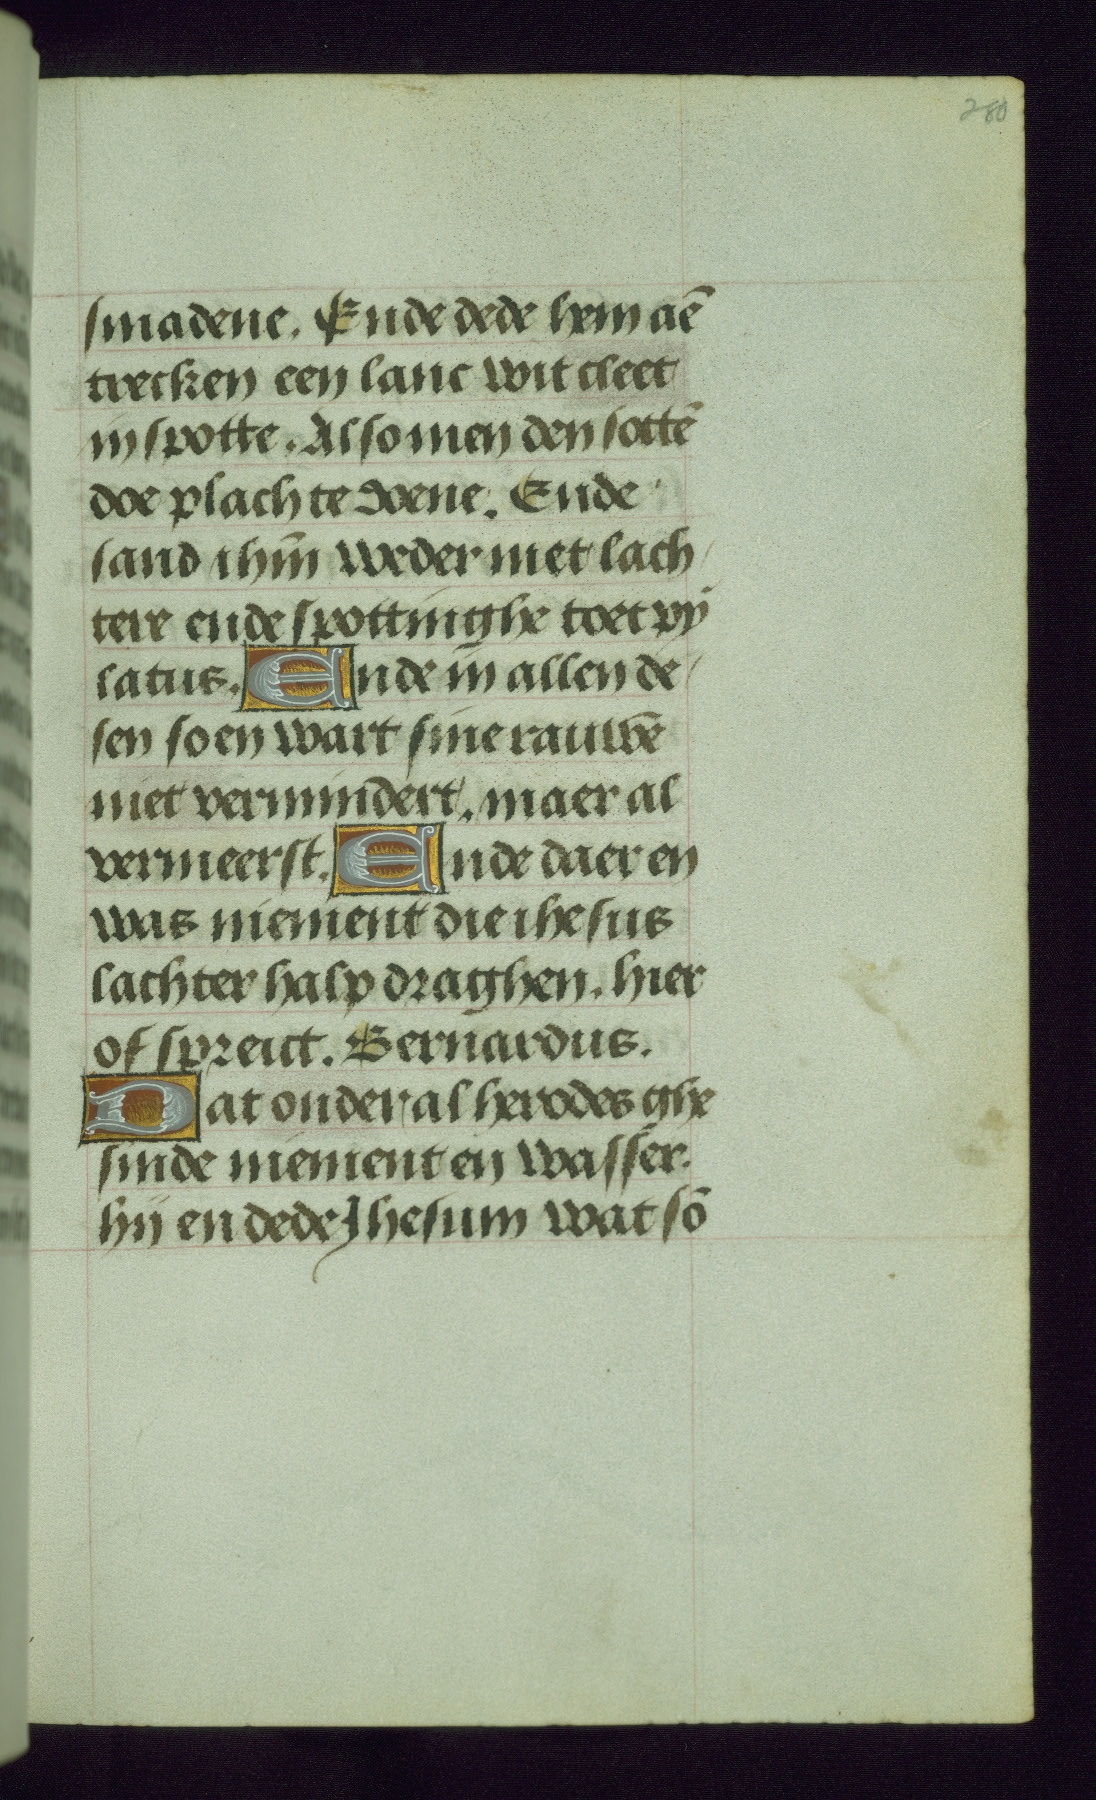 280
smadene. Ende dede hem aē
trecken een lanc wit cleet
in spotte. Also men den sottē
doe plach te doene. Ende
sand ihm̄ weder met lach
tere ende spottinghe toet py
latus. Ende in allen de
sen so en wart sine rauwē
niet vermindert. maer al
vermeerst. Ende daer en
was niement die ihesus
lachter halp draghen. hier
of spreict. Bernardus.
Dat onder al herodes ghe
sinde niement en wasser.
hij en dede Jhesum wat sō